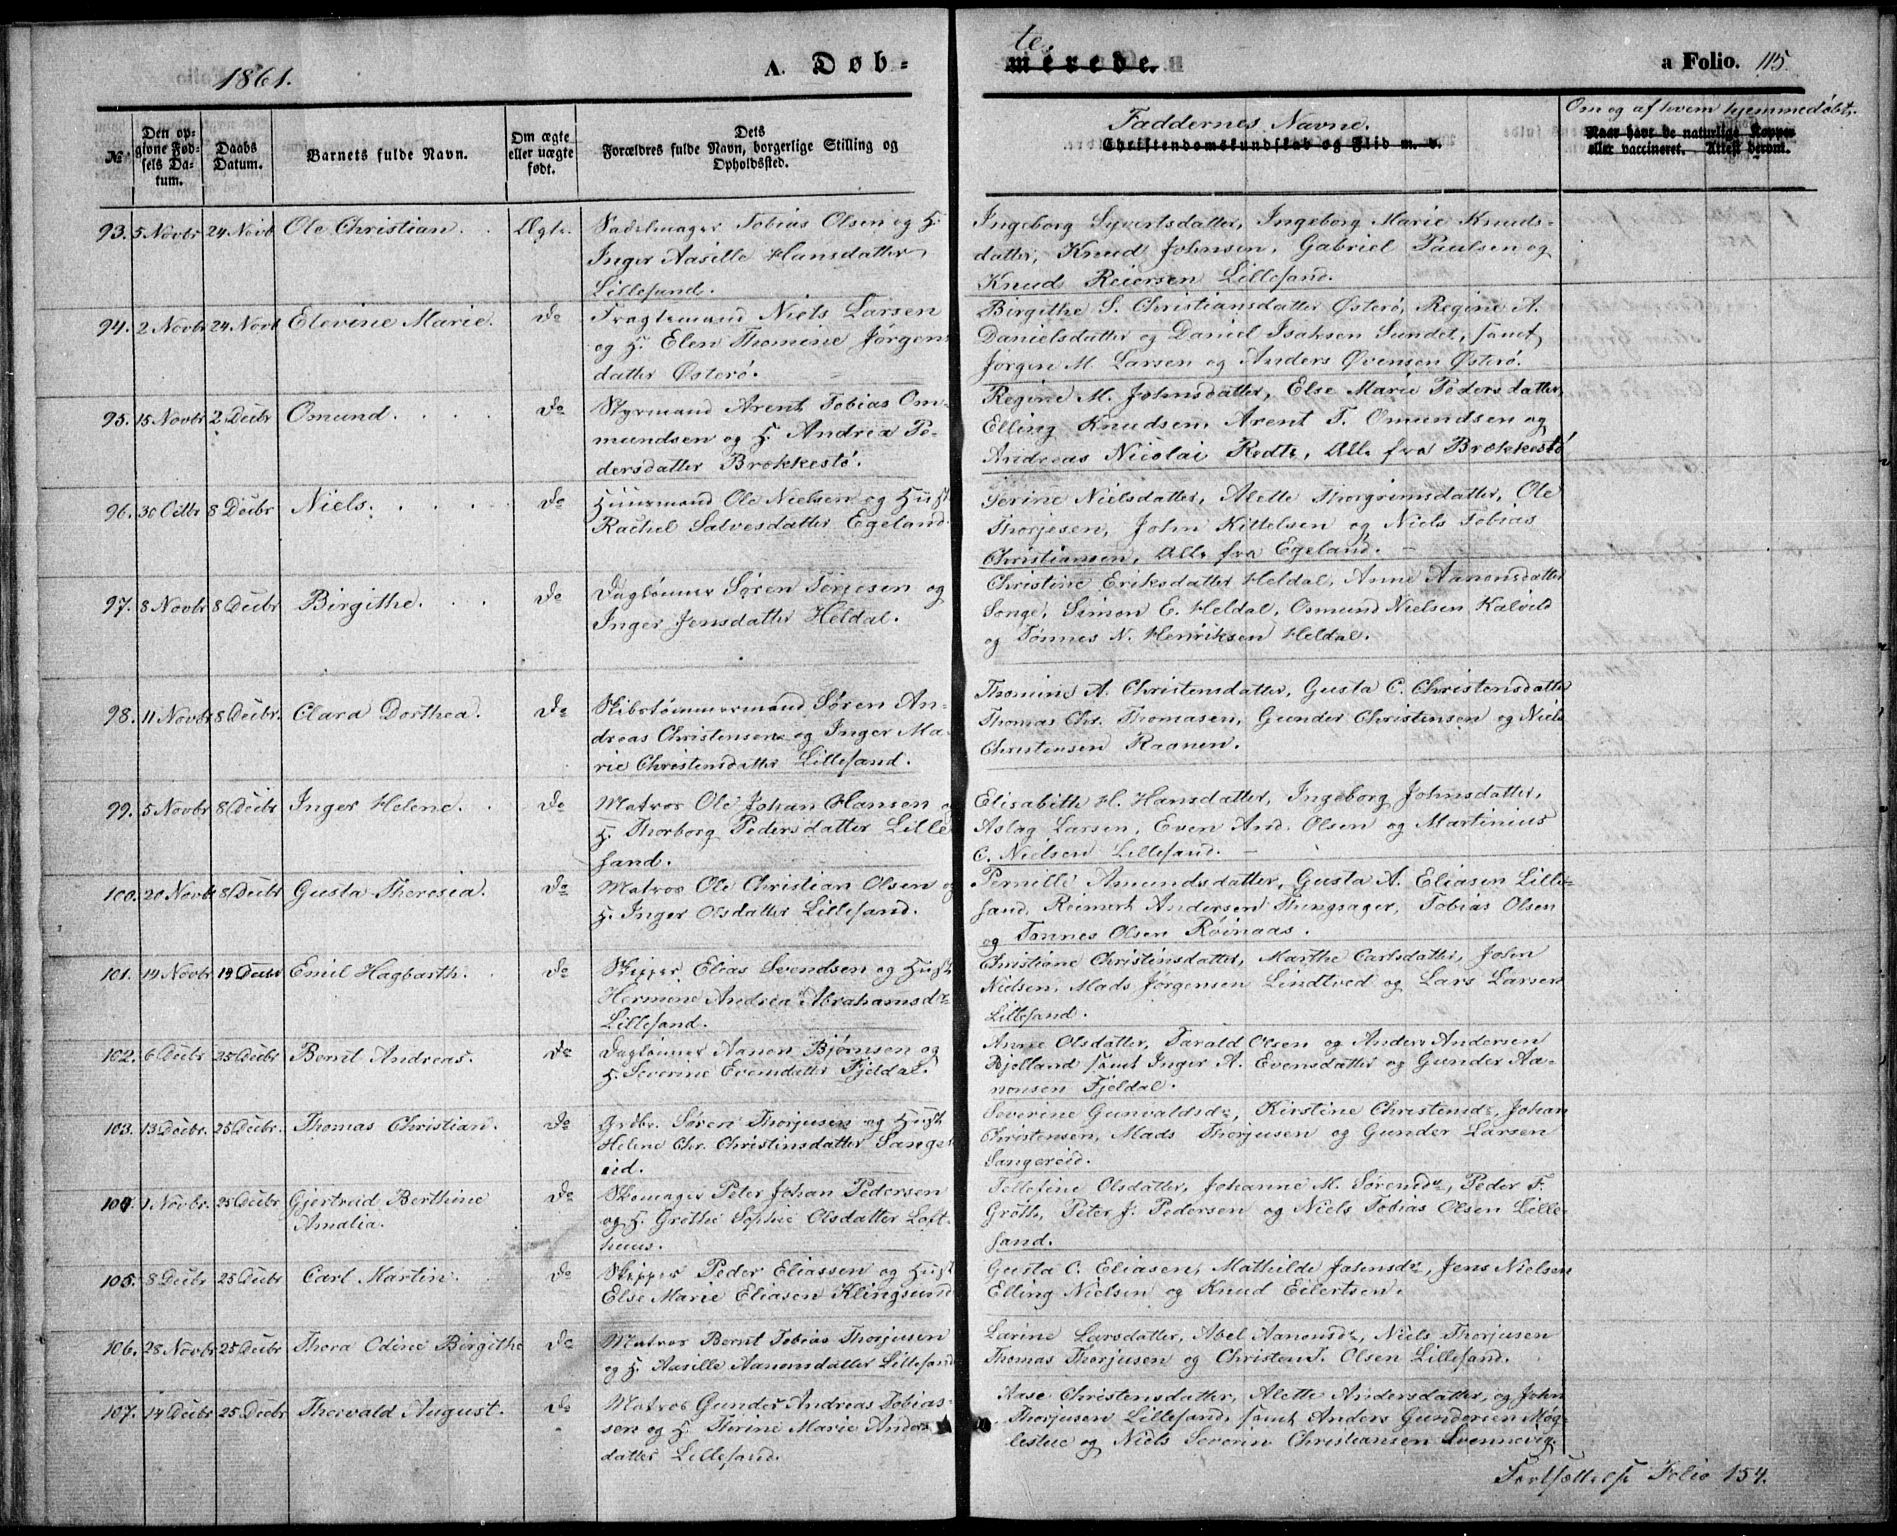 1861.
A. Døb-
te.
merede.
a Folio. 115.
№
Den op-
givne Fød-
sels Da-
tum.
Daabs
Datum.
Barnets fulde Navn.
Om ægte
eller uægte
født.
Dets
Forældres fulde Navn, borgerlige Stilling og
Opholdssted.
Faddernes Navne.
Christendomskundskab og Flid m. v.
Om og af hvem hjemmedøbt.
Naar havt de naturlige Kopper
eller vaccineret. Attest derom.
93. 5 Novbr 24 Novb Ole Christian. Ægte. Sadelmager Tobias Olsen og H.
Inger Aasille Hansdatter
Lillesand.
Ingeborg Syvertsdatter, Ingeborg Marie Knuds-
datter, Knud Johnsen, Gabriel Paulsen og
Knud Reiersen Lillesand.
94. 2 Novbr 24 Novb Elevine Marie. do Fragtemand Niels Larsen
og H. Elen Thomine Jørgens
datter Østerø.
Birgithe S. Christiansdatter Østerø, Regine A.
Danielsdatter og Daniel Isaksen Sundet, samt
Jørgen M. Larsen og Anders Øvensen Østerø.
95. 15 Novbr 2 Decbr Omund. do Styrmand Arent Tobias Om-
mundsen og H. Andrea Pe-
dersdatter Brækkestø.
Regine M. Johnsdatter, Else Marie Pedersdatter,
Elling Knudsen, Arent T. Omundsen og
Andreas Nicolai Redte, Alle fra Brækkestø
96. 30 Octbr 8 Decbr Niels. do Huusmand Ole Nielsen og Hust
Rachel Salvesdatter Egeland.
Serine Nielsdatter, Alette Thorgrimsdatter, Ole
Thorjesen, John Kittelsen og Niels Tobias
Christiansen, Alle fra Egeland.
97. 8 Novbr 8 Decbr Birgithe. do Daglønner Søren Terjesen og
Inger Jensdatter Heldal.
Christine Eriksdatter Heldal, Anne Aanonsdatter
Songe, Simon E. Heldal, Osmund Nielsen Kalvild
og Tønnes N. Henriksen Heldal.
98. 11 Novbr 8 Decbr. Clara Dorthea. do Skibstømmermand Søren An-
dreas Christensen og Inger Ma-
rie Christensdatter Lillesand.
Thomine A. Christensdatter, Gusta C. Christensdatter
Thomas Chr. Thomasen, Gunder Christensen og Niels
Christensen Raanen.
99. 5 Novbr 8 Decbr Inger Helene. do Matros Ole Johan Hansen og
H. Thorborg Pedersdatter Lille
sand.
Elisabeth H. Hansdatter, Ingeborg Johnsdatter,
Aslag Larsen, Even And. Olsen og Martinius
C. Nielsen Lillesand.
100. 20 Novbr 8 Decbr Gusta Theresia. do Matros Ole Christian Olsen og
H. Inger Olsdatter Lillesand.
Pernille Amundsdatter, Gusta A. Eliasen Lille-
sand, Reimert Andersen Thingsager, Tobias Olsen
og Tønnes Olsen Røinaas.
101. 14 Novbr 19 Decbr Emil Hagbarth. do Skipper Elias Svendsen og Hust
Hermine Andrea Abrahamsdr
Lillesand.
Christiane Christinsdatter, Marthe Carlsdatter, John
Nielsen, Mads Jørgensen Lindtved og Lars Larsen
Lillesand.
102. 6 Decbr 25 Decbr Bernt Andreas. do Daglønner Aanon Bjørnsen og
H. Severine Evensdatter Fjeldal.
Anne Olsdatter, Tarald Olsen og Anders Andersen
Bjelland samt Inger A. Evensdatter og Gunder Aa-
nonsen Fjeldal.
103. 13 Decbr. 25 Decbr. Thomas Christian. do Grdbr. Søren Thorjusen og Hust
Helene Chr. Christinsdatter Sange
eid.
Severine Gunvaldsdr, Kirstine Christensdr, Johan
Christensen, Mads Thorjusen og Gunder Larsen
Sangereid.
104. 1 Novbr. 25 Decbr Gjertrud Berthine
Amalia.
do Skomager Peter Johan Pedersen
og H. Grethe Sophie Olsdatter Loft-
huus.
Tellefine Olsdatter, Johanne M. Sørensdr, Peder F.
Grøth, Peter J. Pedersen og Niels Tobias Olsen Lille-
sand.
105. 8 Decbr 25 Decbr Carl Martin. do Skipper Peder Eliassen og Hust
Else Marie Eliasen Klingsund
Gusta C. Eliasen, Mathilde Jasensdr, Jens Nielsen
Elling Nielsen og Knud Eilertsen.
106. 28 Novbr 25 Decbr Thora Odine Birgithe do Matros Bernt Tobias Thorjusen
og H. Aasille Aanonsdatter Lillesand
Larine Larsdatter, Abel Aanonsdr, Niels Thorjusen
Thomas Thorjusen og Christen T. Olsen Lillesand.
107. 14 Decbr 25 Decbr Thorvald August. do Matros Gunder Andreas Tobias-
sen og H. Thrine Marie Anders
datter Lillesand.
Aase Christensdatter, Alette Andersdatter, og John
Thorjusen Lillesand, samt Anders Gundersen Møg-
lestue og Niels Severin Christiansen Svennevig.
Fortsættelse Folio 154.